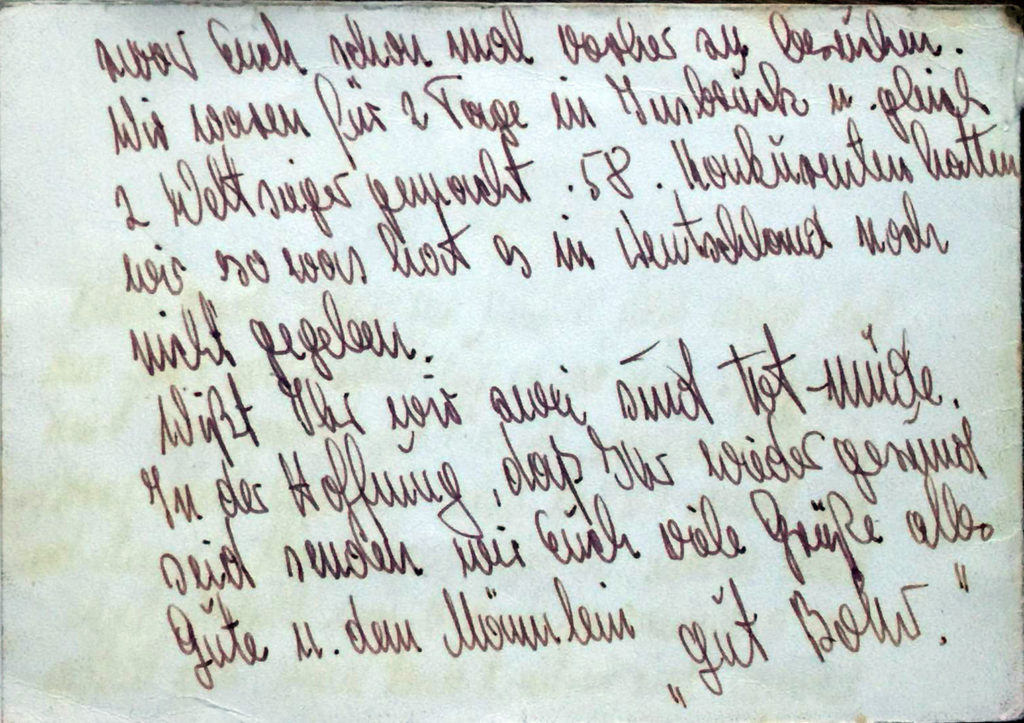 war Euch schon mal vorher zu besuchen.
Wir waren für 2 Tage in Insbruck u. gleich
2 Weltsieger gemacht. 58. Konkurenten hatten
wir so was hat es in Deutschland noch
nicht gegeben.
Wißt Ihr wir zwei sind tot-müde.
In der Hoffnung, daß Ihr wieder gesund
seid senden wir Euch viele Grüße alles
Gute u. dem Männlein
„gut Bohr."